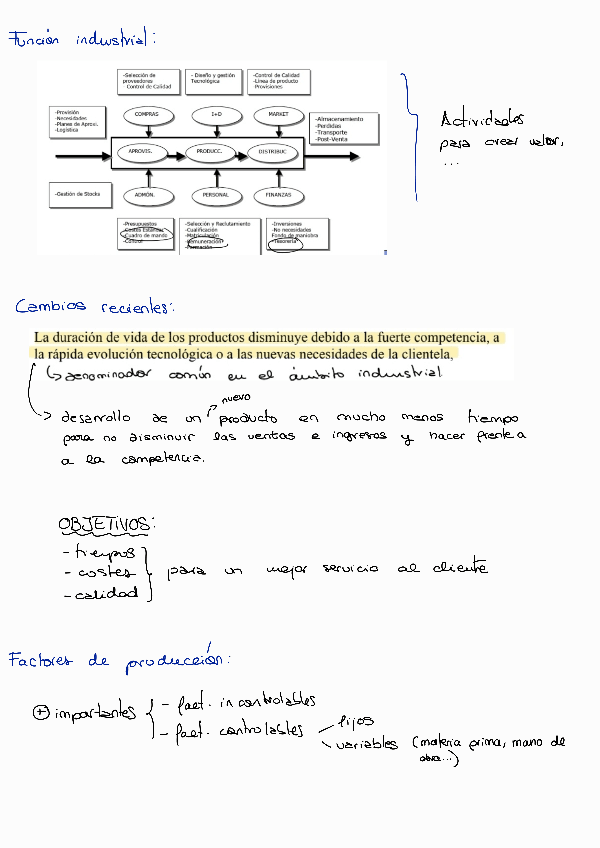 Función industrial:
-Selección de
proveedores
Control de Calidad
- Diseño y gestión
Tecnológica
-Control de Calidad
-Linea de producto
Provisiones
-Provisión
-Necesidades
-Planes de Aprovi.
-Logística
COMPRAS
I+D
MARKET
-Almacenamiento
-Perdidas
-Transporte
-Post-Venta
APROVIS.
PRODUCC.
DISTRIBUC.
-Gestión de Stocks
ADMÓN.
PERSONAL
FINANZAS
-Presupuestos
-Costes Estándar
-Cuadro de mando
-Control
-Selección y Reclutamiento
-Cualificación
-Matriculación
-Remuneración
-Formación
-Inversiones
-No necesidades
Fondo de maniobra
-Tesorería
Actividades
para crear valor,
...
Cambios recientes:
La duración de vida de los productos disminuye debido a la fuerte competencia, a
la rápida evolución tecnológica o a las nuevas necesidades de la clientela,
denominador común en el ámbito industrial
nuevo
desarrollo de un producto en mucho menos tiempo
para no disminuir las ventas e ingresos y hacer frente a
a la competencia.
OBJETIVOS:
- tiempos
- costes
- calidad
para un mejor servicio al cliente
Factores de producción:
+ importantes
- fact. incontrolables
- fact. controlables
fijos
variables (materia prima, mano de
obra...)